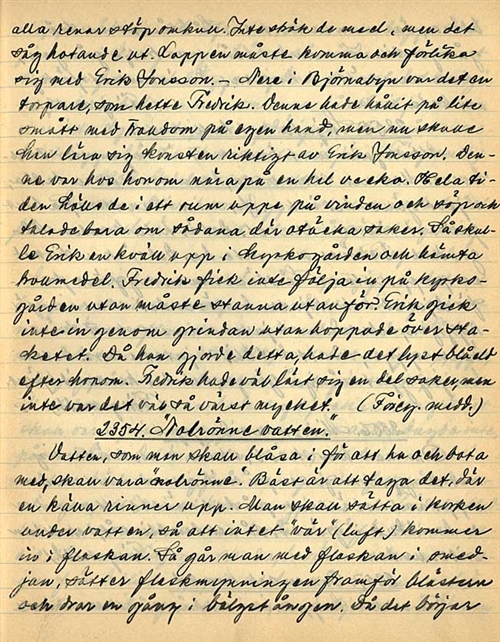 alla renar stöp omkull. Inte skök de med, men det
såg hotande ut. Lappen måste komma och förlika
sig med Erik Jonsson. – Nere i Björnabyn var det en
torpare, som hette Fredrik. Denne hade hållit på lite
smått med trolldom på egen hand, men nu skulle
han lära sig konsten riktigt av Erik Jonsson. Den-
ne var hos honom nära på en hel vecka. Hela ti-
den hölls de i ett rum uppe på vinden och söp och
talade bara om sådana där otäcka saker. Så skul-
le Erik en kväll upp i kyrkogården och hämta
trollmedel. Fredrik fick inte följa in på kyrko-
gården utan måste stanna utanför. Erik gick
inte in genom grindan utan hoppade över sta-
ketet. Då han gjorde detta, hade det lyst blåeld
efter honom. Fredrik hade väl lärt sig en del saker, men
inte var det väl så värst mycket. (Föreg. medd.)
2354. "Nolrönne vatten."
Vatten, som man skall blåsa i för att hu och bota
med, skall vara "nolrönne". Bäst är att taga det, där
en källa rinner upp. Man skall sätta i korken
under vatten, så att intet "vär" (luft) kommer
in i flaskan. Så går man med flaskan i smed-
jan, sätter flaskmynningen framför blästern
och drar en gång i bälgstången. Då det börjar